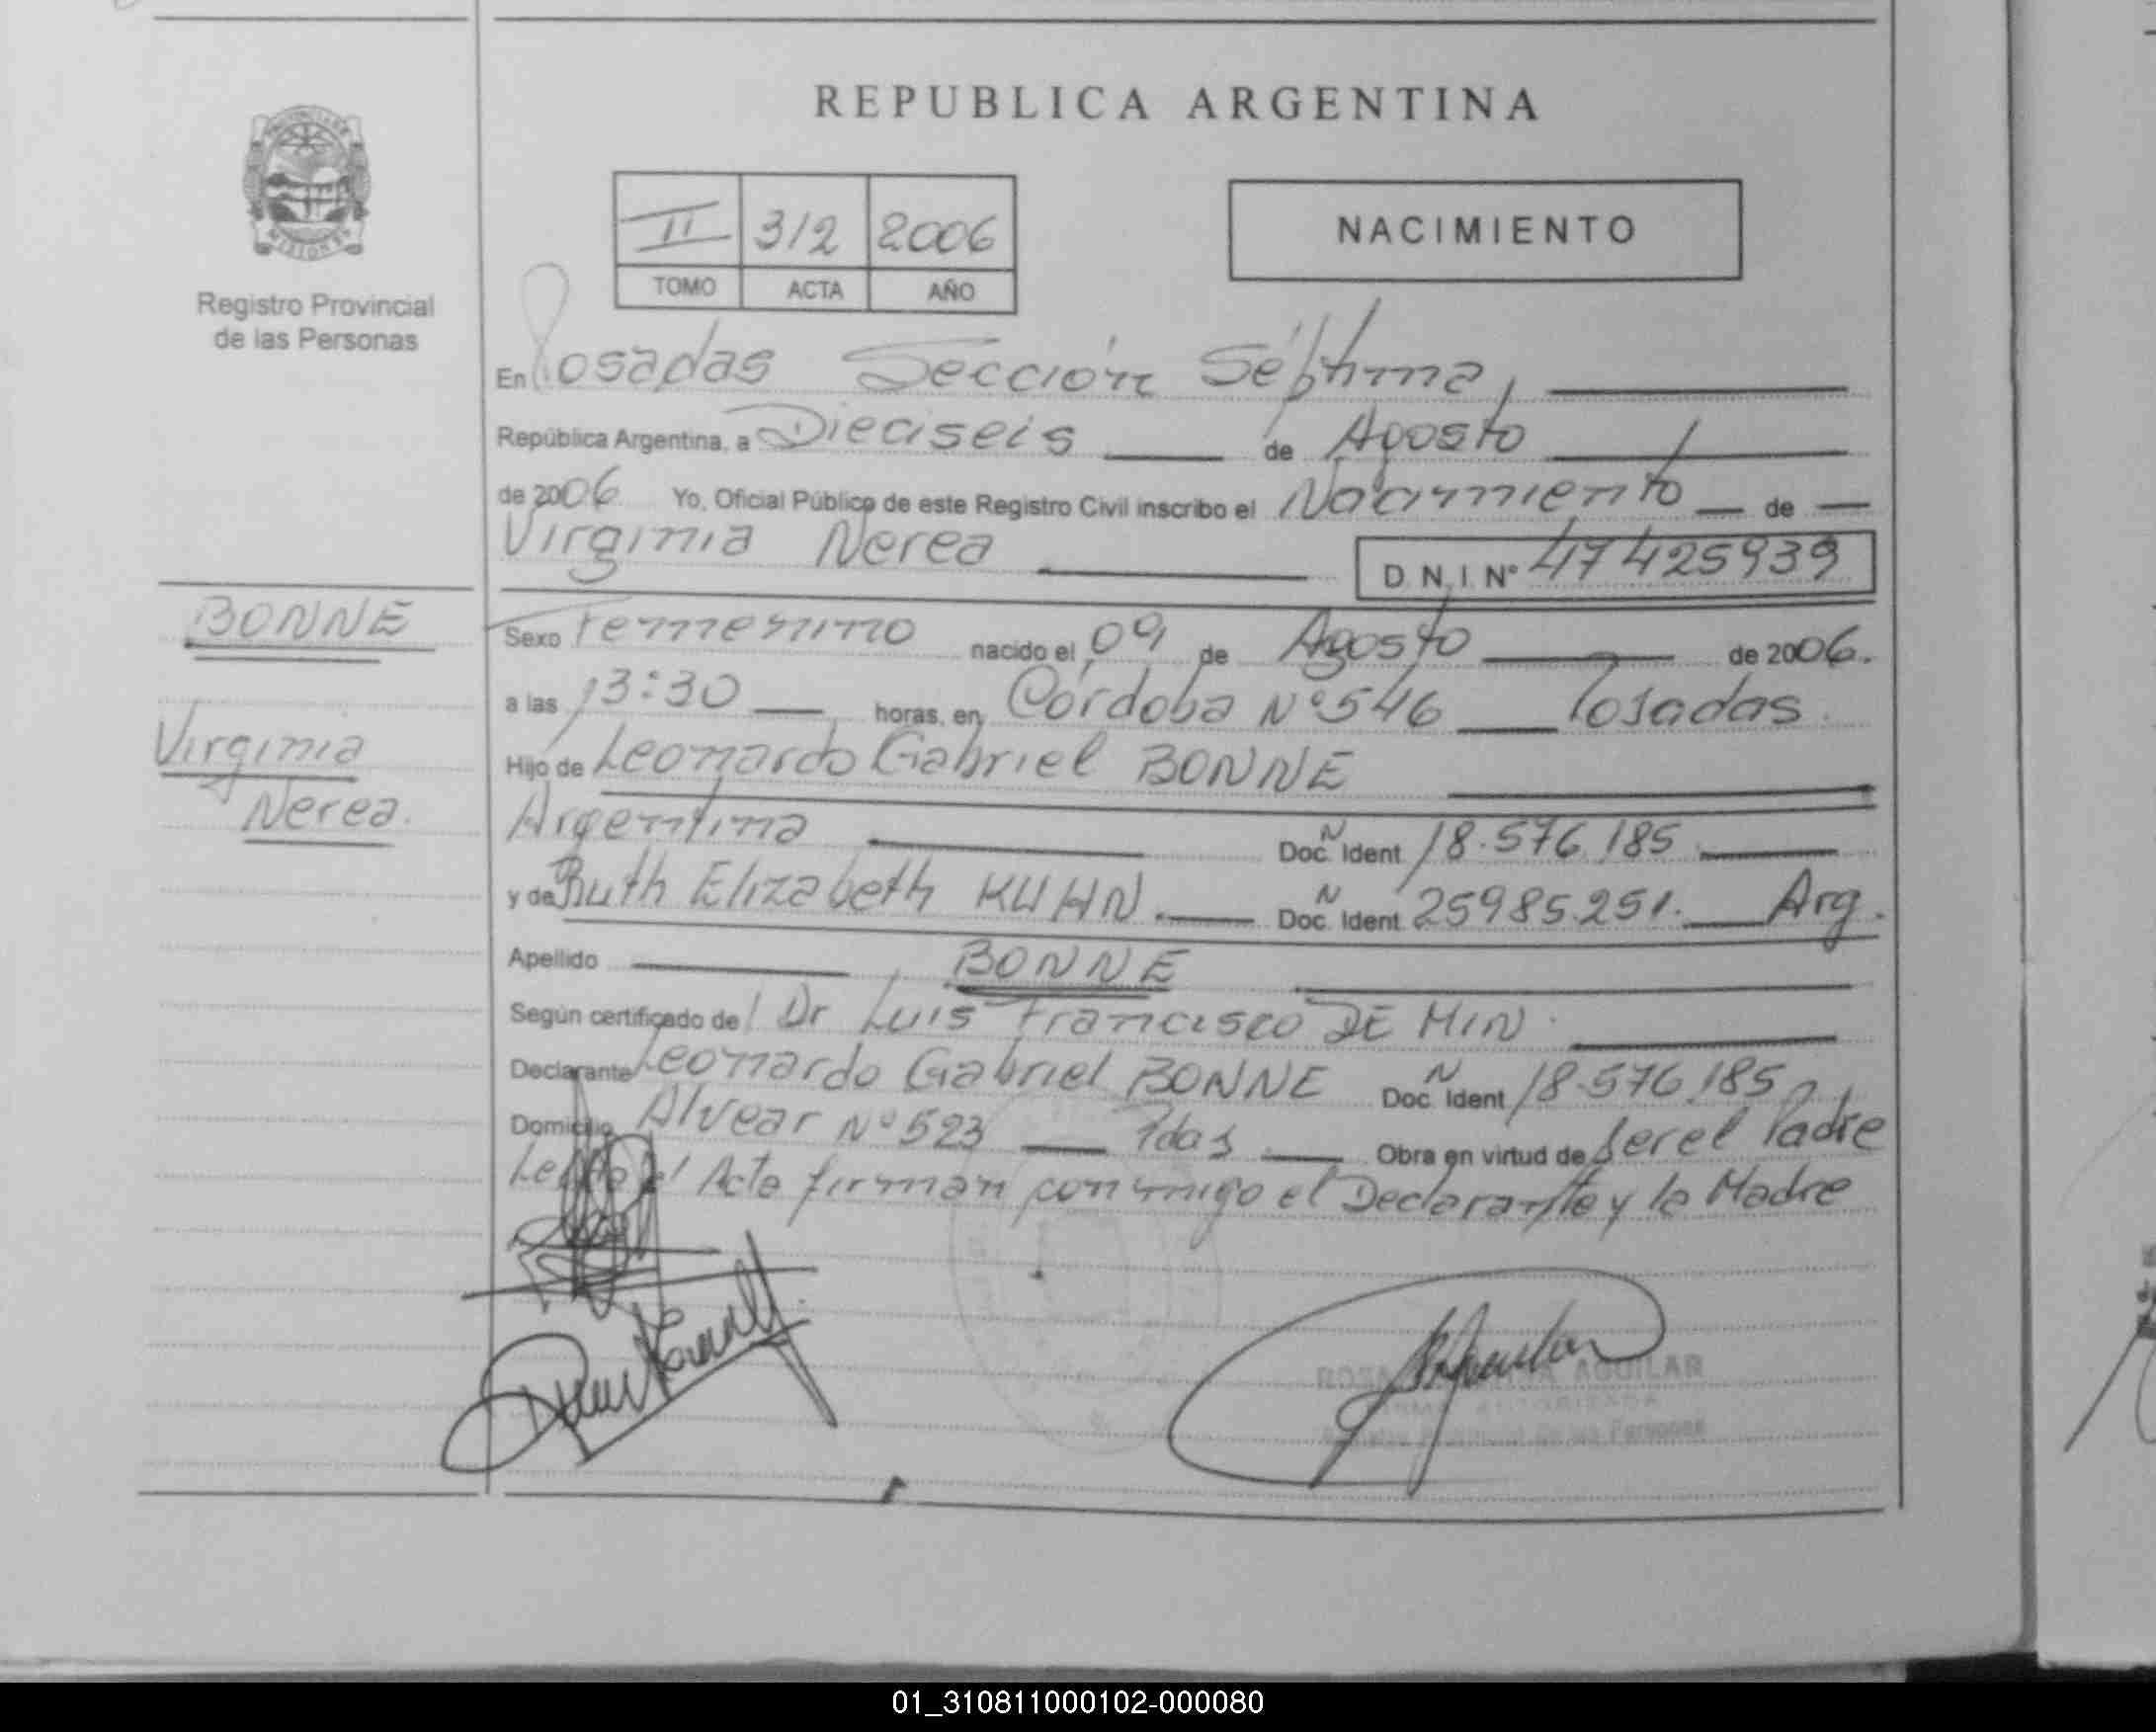 REPUBLICA ARGENTINA
Registro Provincial
de las Personas
II 312 2006
TOMO ACTA AÑO
NACIMIENTO
En Posadas Sección Séptima,
República Argentina, a Dieciseis de Agosto
de 2006 Yo, Oficial Público de este Registro Civil inscribo el Nacimiento de
Virginia Nerea D.N.I. Nº 47425939
BONNE
Virginia
Nerea.
Sexo Femenino nacido el 09 de Agosto de 2006.
a las 13:30 horas, en Córdoba Nº 546 Posadas.
Hijo de Leonardo Gabriel BONNE
Argentina Doc. Ident N 18.576.185
y de Ruth Elizabeth KUHN. Doc. Ident N 25985.251. Arg.
Apellido BONNE
Según certificado del Dr Luis Francisco DE MIN.
Declarante Leonardo Gabriel BONNE Doc. Ident N 18.576.185
Domicilio Alvear Nº 523 Pdas Obra en virtud de ser el Padre
Leída el Acta firman conmigo el Declarante y la Madre
AGUILAR
Provincial de las Personas
01_310811000102-000080